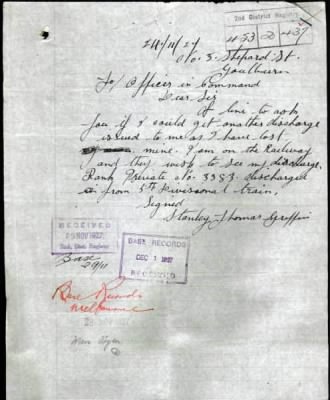 2nd District Registry
433-D-437
24/11/27
No. 3. Shepard St.
Goulburn
To/ Officer in Command
Dear Sir
I line to ask
you if I could get another discharge
issued to me as I have lost
mine. I am on the Railway
and they wish to see my discharge.
Rank Private No. 3383. discharged
from 5th Divissonal train,
Signed
Stanley Thomas Griffin
RECEIVED
25 NOV 1927
2nd. Dist. Registry
Base
29/11
BASE RECORDS
DEC 1 1927
RECEIVED
Base Records
Melbourne